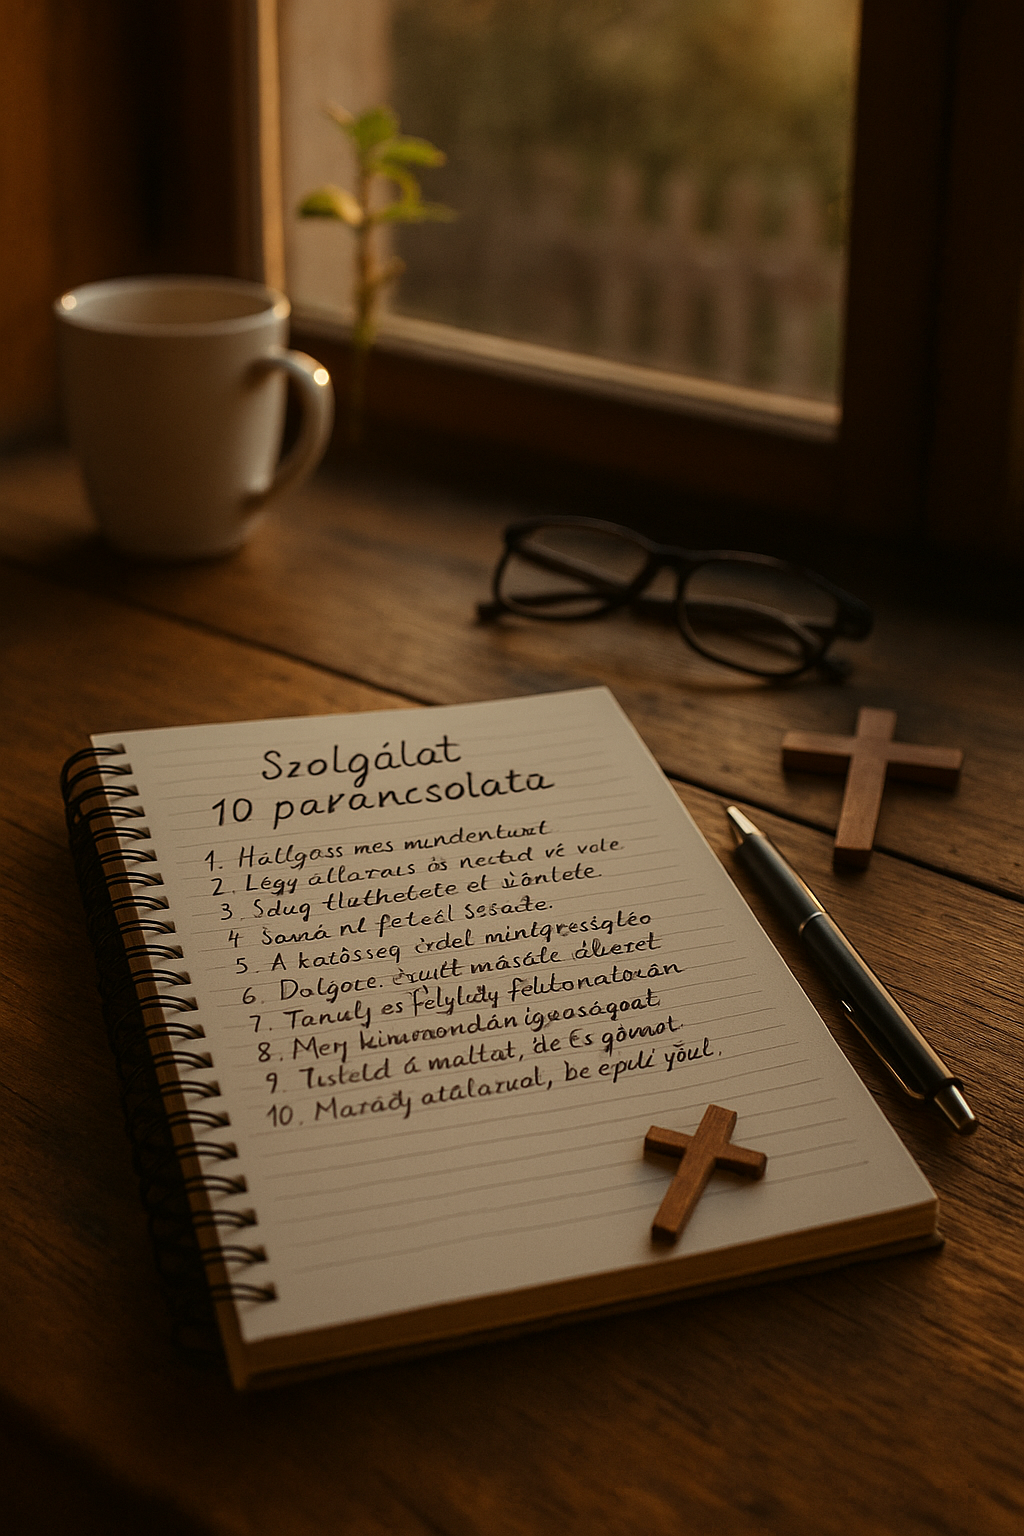 Szolgálat
10 parancsolata
1. Hállgass mes mundentuzt
2. Légy állarais ös nectid vé vole.
3. Sdug tluthetete et üöntete.
4 Samá nl feteél Sesaete.
5. A katôsseq érdel mintgressigléo
6. Dalgote. èruitt másáte álieret
7. Tanulj es félyludy felttonatoián
8. Merj kimondán igeoságoat
9. Tisteld á maltat, de És gômot.
10. Marádj atálarual, be epuli yôul.